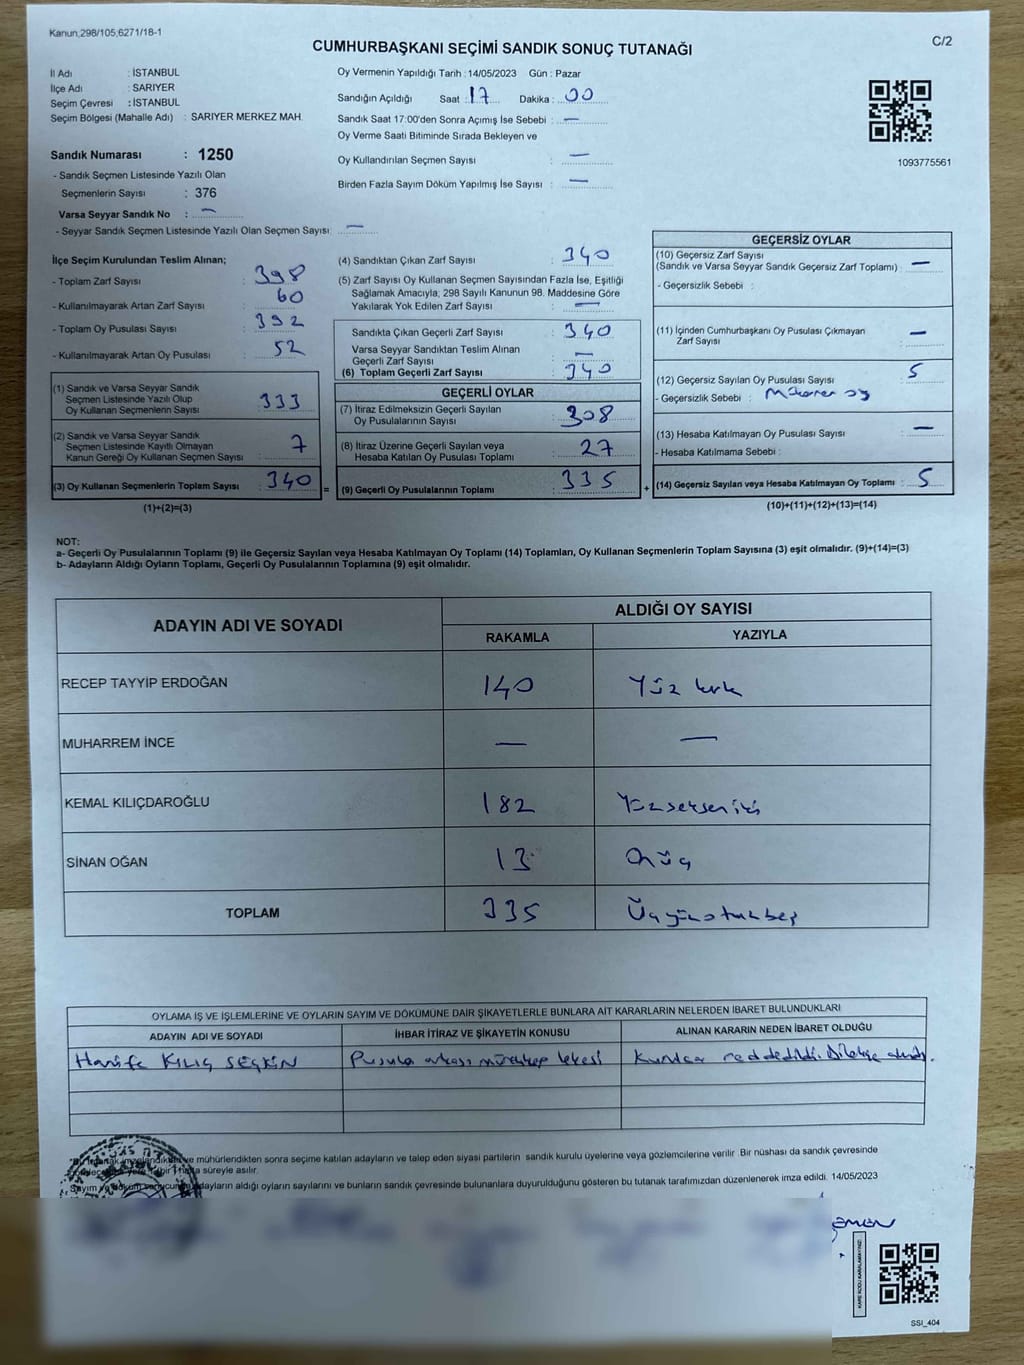 Kanun,298/105,6271/18-1
C/2
CUMHURBAŞKANI SEÇİMİ SANDIK SONUÇ TUTANAĞI
İl Adı : İSTANBUL
İlçe Adı : SARIYER
Seçim Çevresi : İSTANBUL
Seçim Bölgesi (Mahalle Adı) : SARIYER MERKEZ MAH.
Sandık Numarası : 1250
- Sandık Seçmen Listesinde Yazılı Olan
Seçmenlerin Sayısı : 376
Varsa Seyyar Sandık No : —
- Seyyar Sandık Seçmen Listesinde Yazılı Olan Seçmen Sayısı: —
Oy Vermenin Yapıldığı Tarih : 14/05/2023 Gün : Pazar
Sandığın Açıldığı Saat : 17 Dakika : 00
Sandık Saat 17:00'den Sonra Açımış İse Sebebi : —
Oy Verme Saati Bitiminde Sırada Bekleyen ve
Oy Kullandırılan Seçmen Sayısı : —
Birden Fazla Sayım Döküm Yapılmış İse Sayısı : —
1093775561
İlçe Seçim Kurulundan Teslim Alınan;
- Toplam Zarf Sayısı : 398
- Kullanılmayarak Artan Zarf Sayısı : 60
- Toplam Oy Pusulası Sayısı : 392
- Kullanılmayarak Artan Oy Pusulası : 52
(1) Sandık ve Varsa Seyyar Sandık
Seçmen Listesinde Yazılı Olup
Oy Kullanan Seçmenlerin Sayısı : 333
(2) Sandık ve Varsa Seyyar Sandık
Seçmen Listesinde Kayıtlı Olmayan
Kanun Gereği Oy Kullanan Seçmen Sayısı : 7
(3) Oy Kullanan Seçmenlerin Toplam Sayısı : 340
(1)+(2)=(3)
(4) Sandıktan Çıkan Zarf Sayısı : 340
(5) Zarf Sayısı Oy Kullanan Seçmen Sayısından Fazla İse, Eşitliği
Sağlamak Amacıyla, 298 Sayılı Kanunun 98. Maddesine Göre
Yakılarak Yok Edilen Zarf Sayısı : —
Sandıkta Çıkan Geçerli Zarf Sayısı : 340
Varsa Seyyar Sandıktan Teslim Alınan
Geçerli Zarf Sayısı : —
(6) Toplam Geçerli Zarf Sayısı : 340
GEÇERLİ OYLAR
(7) İtiraz Edilmeksizin Geçerli Sayılan
Oy Pusulalarının Sayısı : 308
(8) İtiraz Üzerine Geçerli Sayılan veya
Hesaba Katılan Oy Pusulası Toplamı : 27
= (9) Geçerli Oy Pusulalarının Toplamı : 335
GEÇERSİZ OYLAR
(10) Geçersiz Zarf Sayısı
(Sandık ve Varsa Seyyar Sandık Geçersiz Zarf Toplamı) : —
- Geçersizlik Sebebi :
(11) İçinden Cumhurbaşkanı Oy Pusulası Çıkmayan
Zarf Sayısı : —
(12) Geçersiz Sayılan Oy Pusulası Sayısı : 5
- Geçersizlik Sebebi : Mükerrer oy
(13) Hesaba Katılmayan Oy Pusulası Sayısı : —
- Hesaba Katılmama Sebebi :
+ (14) Geçersiz Sayılan veya Hesaba Katılmayan Oy Toplamı : 5
(10)+(11)+(12)+(13)=(14)
NOT:
a- Geçerli Oy Pusulalarının Toplamı (9) ile Geçersiz Sayılan veya Hesaba Katılmayan Oy Toplamı (14) Toplamları, Oy Kullanan Seçmenlerin Toplam Sayısına (3) eşit olmalıdır. (9)+(14)=(3)
b- Adayların Aldığı Oyların Toplamı, Geçerli Oy Pusulalarının Toplamına (9) eşit olmalıdır.
ADAYIN ADI VE SOYADI
ALDIĞI OY SAYISI
RAKAMLA YAZIYLA
RECEP TAYYİP ERDOĞAN 140 Yüz kırk
MUHARREM İNCE — —
KEMAL KILIÇDAROĞLU 182 Yüzseksen iki
SİNAN OĞAN 13 Onüç
TOPLAM 335 Üçyüzotuzbeş
OYLAMA İŞ VE İŞLEMLERİNE VE OYLARIN SAYIM VE DÖKÜMÜNE DAİR ŞİKAYETLERLE BUNLARA AİT KARARLARIN NELERDEN İBARET BULUNDUKLARI
ADAYIN ADI VE SOYADI İHBAR İTİRAZ VE ŞİKAYETİN KONUSU ALINAN KARARIN NEDEN İBARET OLDUĞU
Hanife KILIÇ SEÇKİN Pusula arkası mürekkep lekesi Kurulca reddedildi. Dilekçe alındı.
ve mühürlendikten sonra seçime katılan adayların ve talep eden siyasi partilerin sandık kurulu üyelerine veya gözlemcilerine verilir. Bir nüshası da sandık çevresinde
süreyle asılır.
Sayım ve döküm sonucunda adayların aldığı oyların sayılarını ve bunların sandık çevresinde bulunanlara duyurulduğunu gösteren bu tutanak tarafımızdan düzenlenerek imza edildi. 14/05/2023
KARE KODU KARALAMAYINIZ!
SSI_404